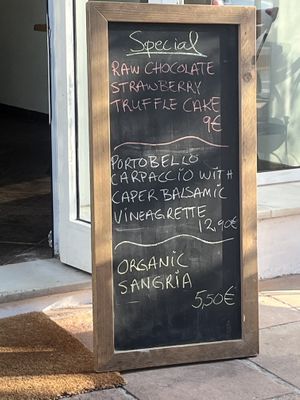 Special
RAW CHOCOLATE
STRAWBERRY
TRUFFLE CAKE
9€
PORTOBELLO
CARPACCIO WITH
CAPER BALSAMIC
VINEAGRETTE
12,90€
ORGANIC
SANGRIA
5,50€